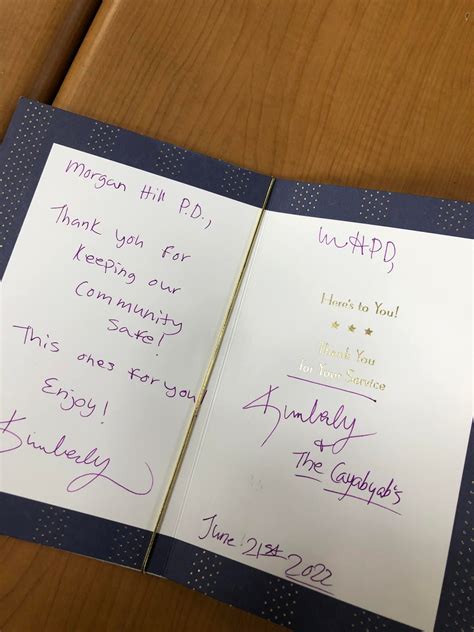 Morgan Hill P.D.,
Thank you for
keeping our
community
safe!
This ones for you!
Enjoy!
Kimberly
MHPD,
Here's to You!
Thank You
for Your Service
Kimberly
&
The Cayabyab's
June 21st 2022